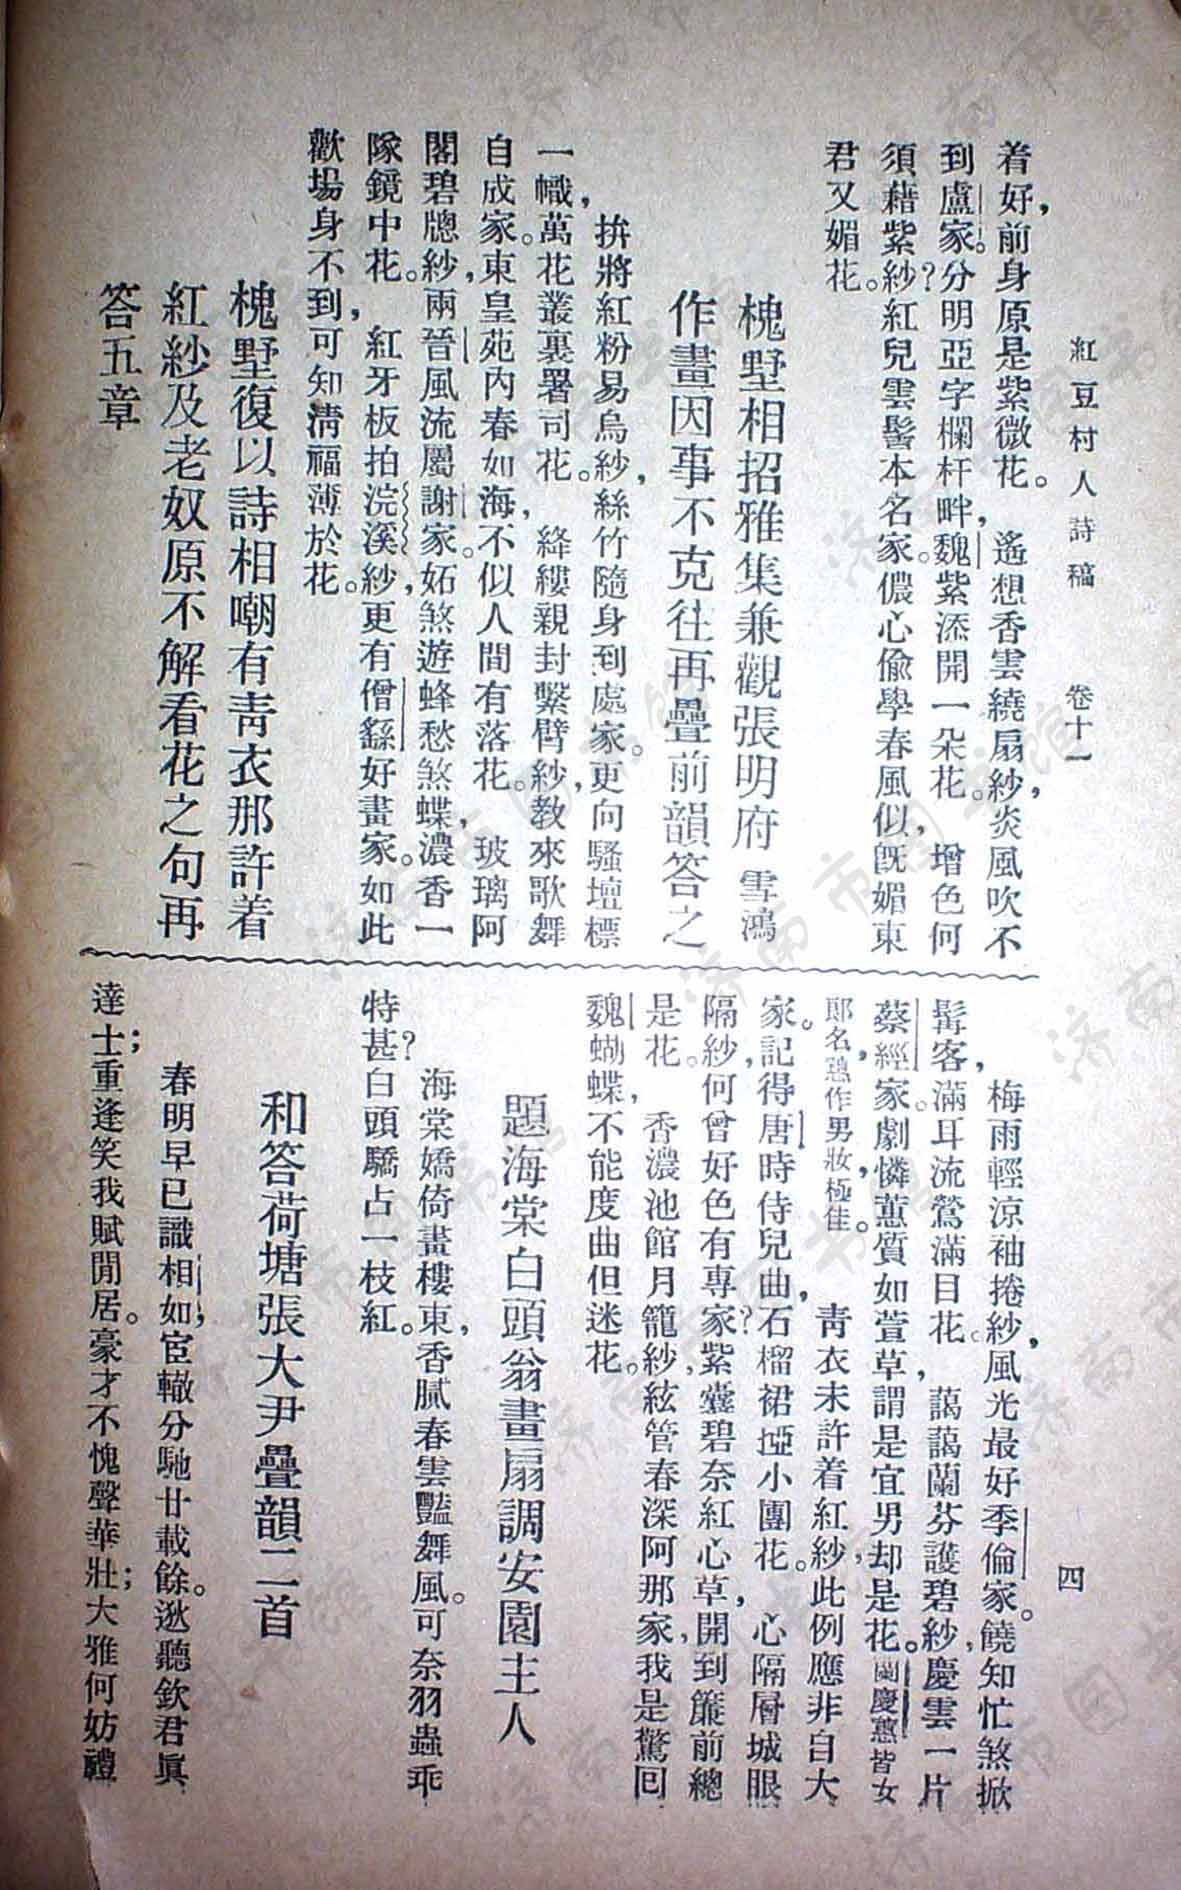 紅豆村人詩稿　卷十一　四
着好，前身原是紫微花。　遙想香雲繞扇紗，炎風吹不
到盧家。分明亞字欄杆畔，魏紫添開一朵花。　增色何
須藉紫紗？紅兒雲髻本名家。儂心偷學春風似，旣媚東
君又媚花。
槐墅相招雅集兼觀張明府雪鴻
作畫因事不克往再疊前韻答之
拚將紅粉易烏紗，絲竹隨身到處家。更向騷壇標
一幟，萬花叢裏署司花。　絳縷親封繫臂紗，教來歌舞
自成家。東皇苑內春如海，不似人間有落花。　玻璃阿
閣碧牕紗，兩晉風流屬謝家。妬煞遊蜂愁煞蝶，濃香一
隊鏡中花。　紅牙板拍浣溪紗，更有僧繇好畫家。如此
歡場身不到，可知淸福薄於花。
槐墅復以詩相嘲有靑衣那許着
紅紗及老奴原不解看花之句再
答五章
梅雨輕涼袖捲紗，風光最好季倫家。饒知忙煞掀
髯客，滿耳流鶯滿目花。　藹藹蘭芬護碧紗，慶雲一片
蔡經家。劇憐蕙質如萱草，謂是宜男却是花。蘭慶蕙皆女
郞名，蕙作男妝，極佳。　靑衣未許着紅紗，此例應非白大
家。記得唐時侍兒曲，石榴裙埡小團花。　心隔層城眼
隔紗，何曾好色有專家？紫囊碧奈紅心草，開到簾前總
是花。　香濃池館月籠紗，絃管春深阿那家，我是驚囘
魏蝴蝶，不能度曲但迷花。
題海棠白頭翁畫扇調安園主人
海棠嬌倚畫樓東，香膩春雲豔舞風。可奈羽蟲乖
特甚？白頭驕占一枝紅。
和答荷塘張大尹疊韻二首
春明早已識相如，宦轍分馳廿載餘。逖聽欽君眞
達士；重逢笑我賦閒居。豪才不愧聲華壯；大雅何妨禮